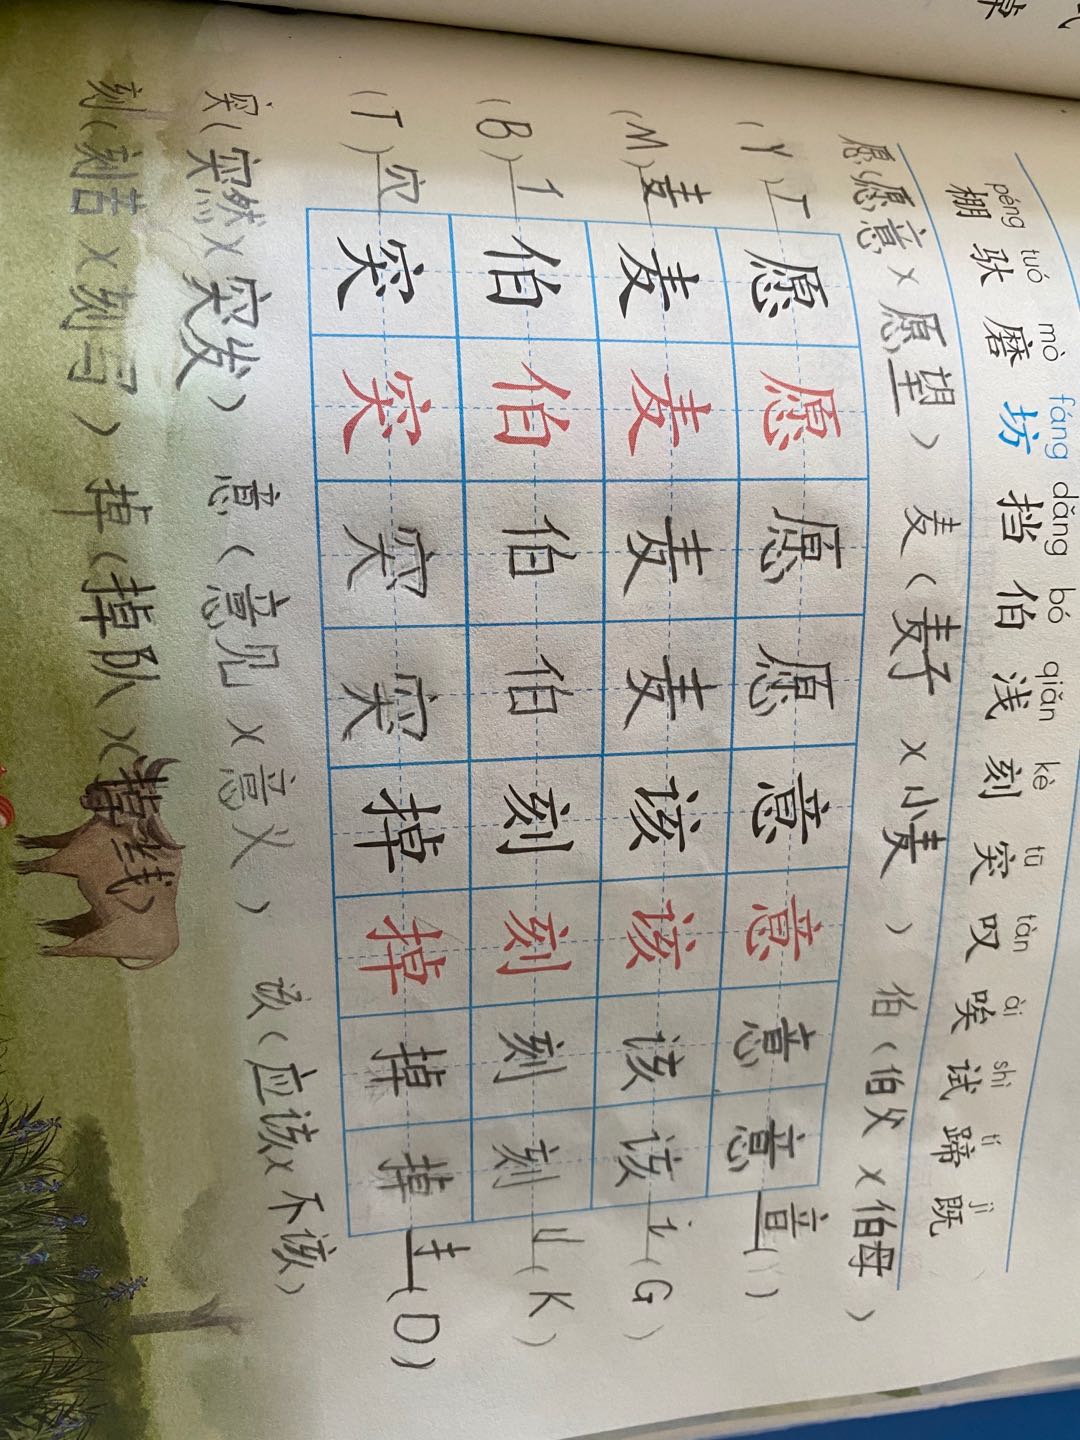 péng tuó mò fáng dǎng bó qiǎn kè tū tàn ài shì tí jì
棚 驮 磨 坊 挡 伯 浅 刻 突 叹 唉 试 蹄 既
愿(愿意)(愿望) 麦(麦子)(小麦) 伯(伯父)(伯母)
(Y)厂 愿 愿 愿 愿 意 意 意 意 音( )
(M)麦 麦 麦 麦 麦 该 该 该 该 讠(G)
(B)亻 伯 伯 伯 伯 刻 刻 刻 刻 刂(K)
(T)穴 突 突 突 突 掉 掉 掉 掉 扌(D)
突(突然)(突发) 意(意见)(意义) 该(应该)(不该)
刻(刻苦)(刻写) 掉(掉队)(掉线)